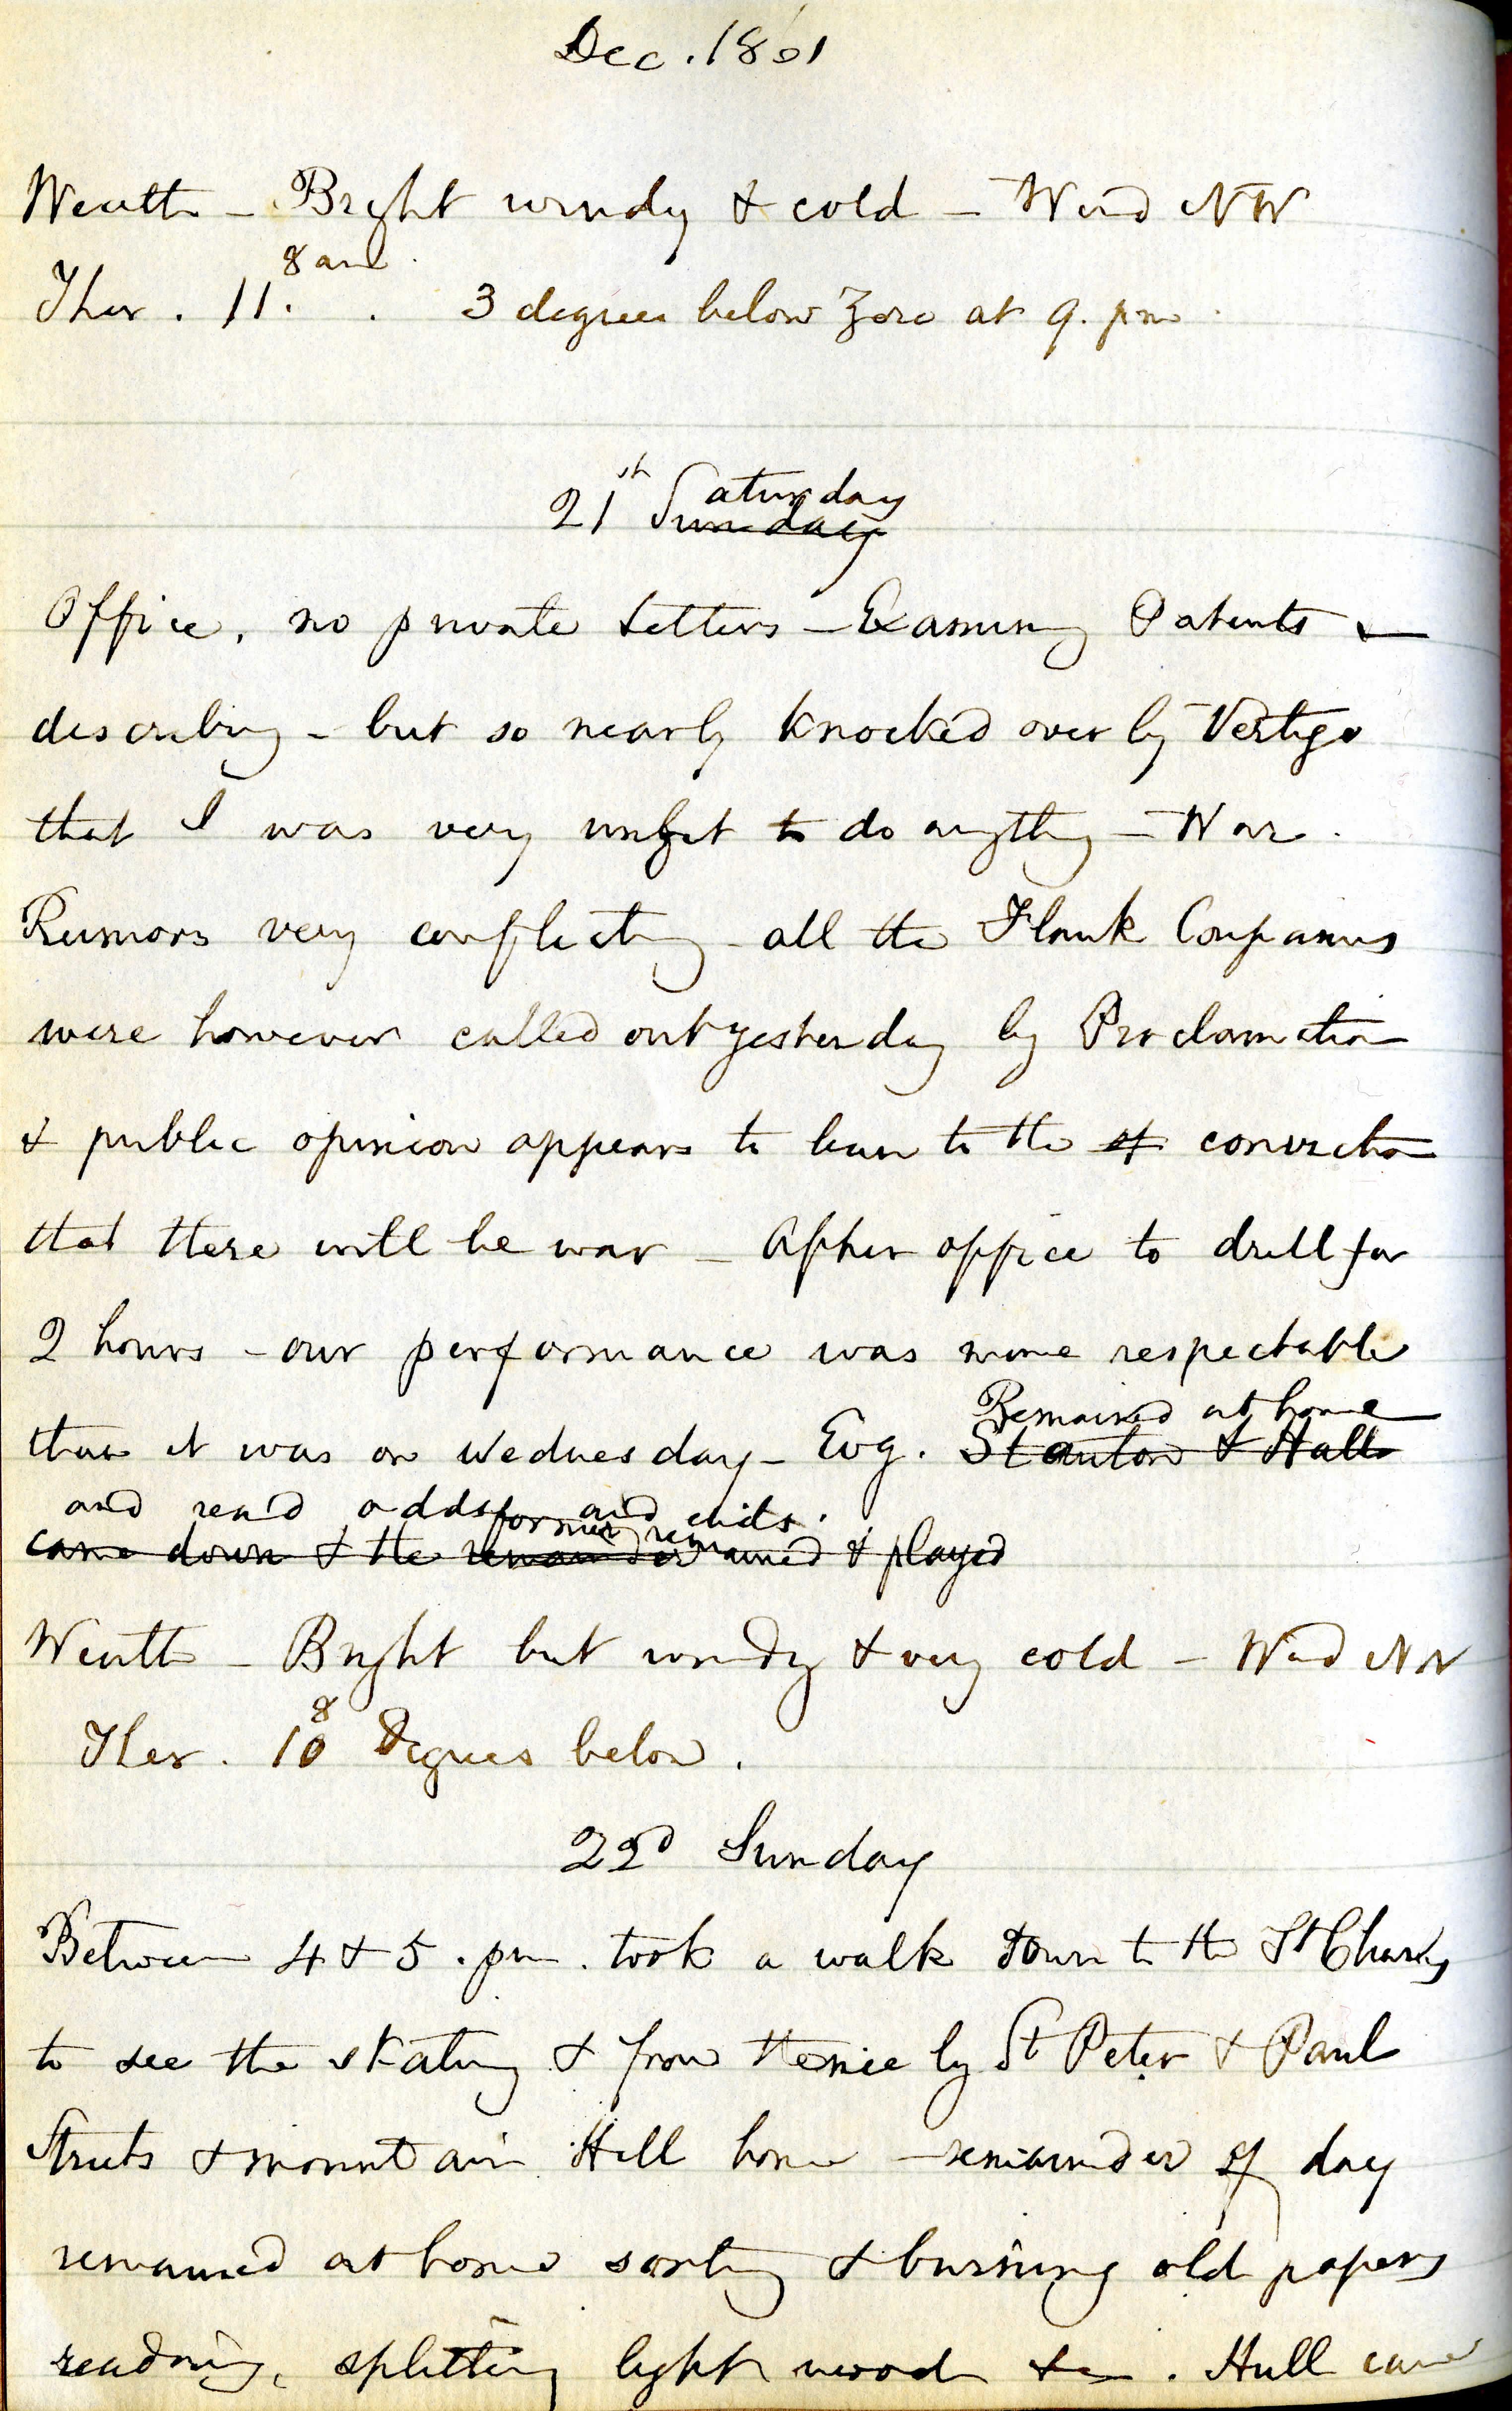 Dec. 1861
Weath - Bright windy & cold - Wind NW
8 am
Ther. 11. . 3 degrees below Zero at 9. pm.
21st Saturday
Sunday
Office, no private letters - Examining Patents &
describing - but so nearly knocked over by Vertigo
that I was very unfit to do anything - War.
Rumors very conflicting - all the Flank Companies
were however called out yesterday by Proclamation
& public opinion appears to lean to the of conviction
that there will be war - After office to drill for
2 hours - our performance was more respectable
Remained at home
than it was on Wednesday - Evg. Stanton & Hall
and read odds and ends.
former rem
came down & the remainder ained & played
Weath - Bright but windy & very cold - Wind NW
8
Ther. 10 degrees below.
22d Sunday
Between 4 & 5. pm. took a walk down to the St Charles
to see the skating & from thence by St Peter & Paul
Streets & mountain Hill home - remainder of day
remained at home sorting & burning old papers
reading, splitting light wood &c. Hull came